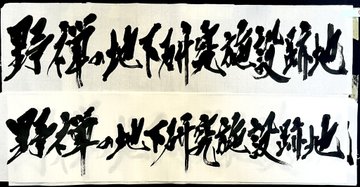 野禅の地下研究施設跡地
野禅の地下研究施設跡地